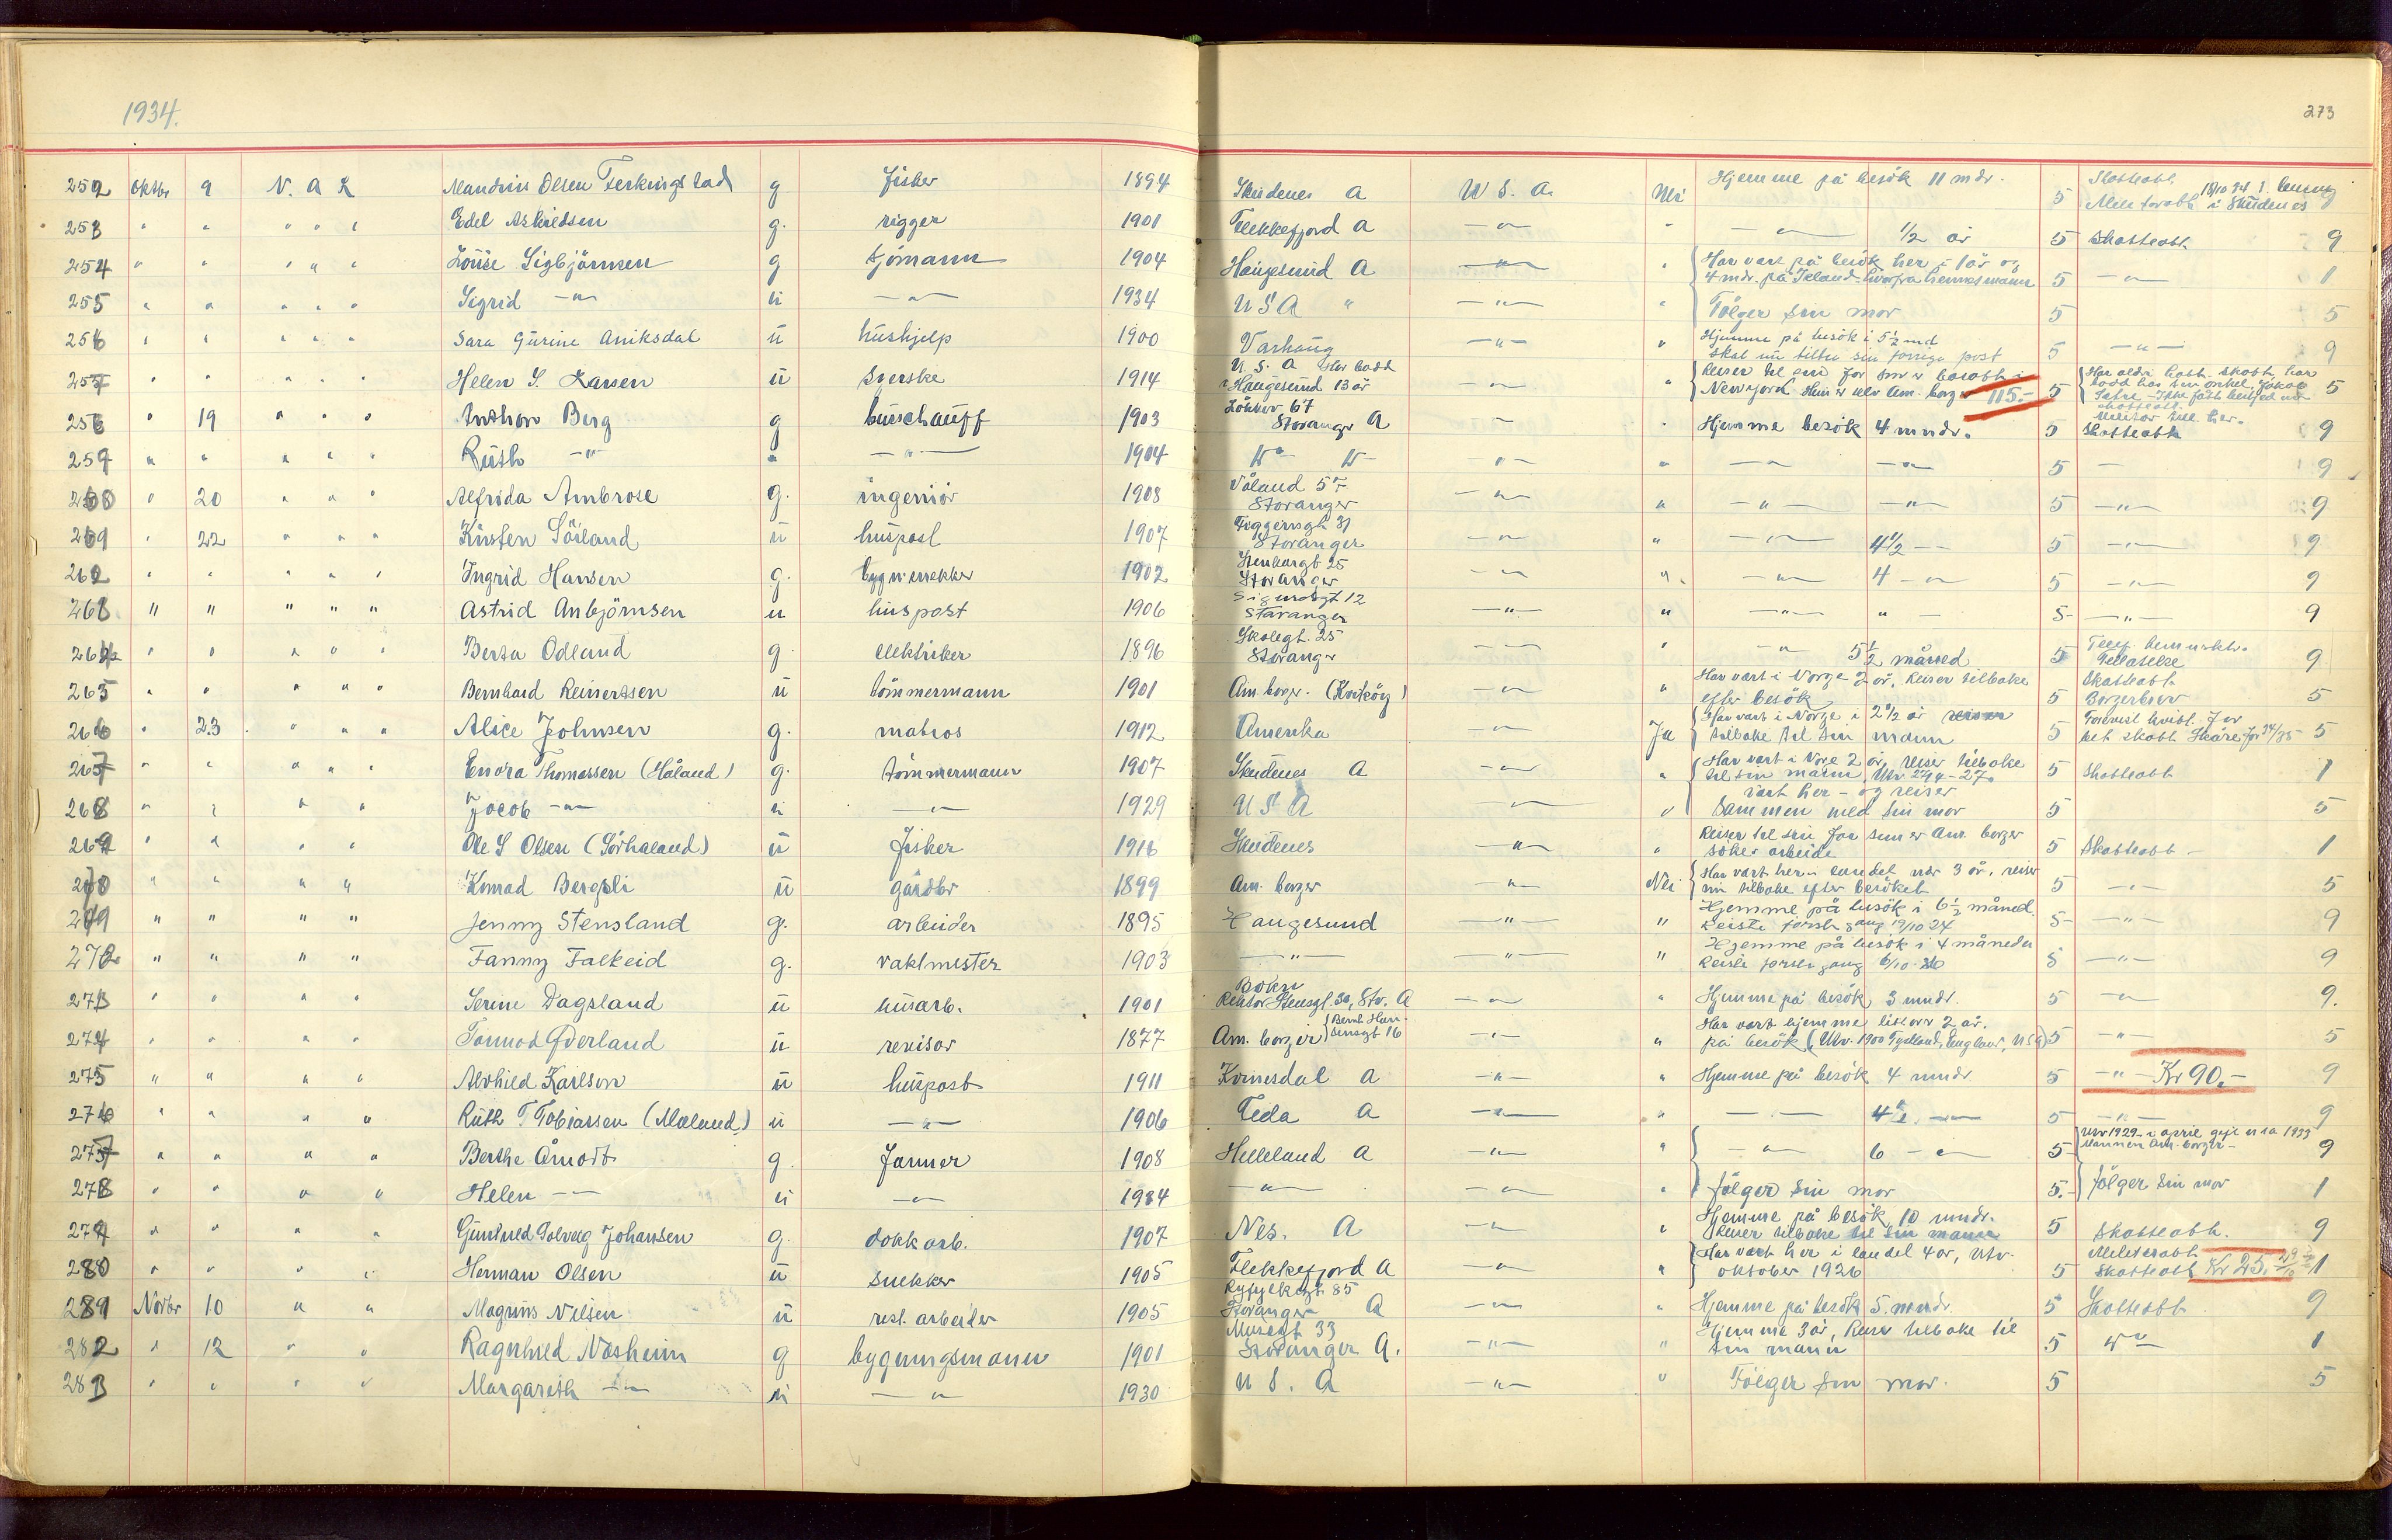 1934.
273
252 Oktbr 9 N. A. L Mandrin Olsen Ferkingstad g fisker 1894 Skudenes A U. S. A. Nei Hjemme på besök 11 mdr. 5 Skatteatt. Militæratt. i Skudenes
253 " " " " " Edel Askildsen g. rigger 1901 Flekkefjord A —"— " —"— 1/2 år 5 Skatteatt 9
254 " " " " " Lovise Sigbjörnsen g sjömann 1904 Haugesund A —"— " Har vært på besök her i 1 år og 4 mdr. på Island 5 —"— 1
255 " " " " " Sigrid —"— ü —"— 1934 U S A " —"— " Fölger sin mor 5 5
256 " " " " " Sara Gurine Aniksdal ü hushjelp 1900 Varhaug —"— " Hjemme på besök i 5 1/2 md skal nu tiltre sin forrige post 5 —"— 9
257 " " " " " Helen S. Larsen ü 1914 U. S. A Har bodd i Haugesund 13 år —"— " Reiser til sin far som er bosatt i Newyork. Hun er selv Am. borger 115.- 5 5
258 " 19 " " " Anthon Berg g buschauff 1903 67 Stavanger A — " Hjemme besök 4 mndr. 5 Skatteatt 9
259 " " " " " Ruth —"— " —"— 1904 —"— " —"— —"— 5 — 9
260 " 20 " " " Alfrida Ambrose g. ingeniör 1908 Våland Stavanger —"— " —"— —"— 5 —"— 9
261 " 22 " " " Kirsten Sörland ü huspost 1907 Stavanger —"— " —"— 4 1/2 —"— 5 —"— 9
262 " " " " " Ingrid Hansen g. bygn.snekker 1902 25 Stavanger —"— " —"— 4 —"— 5 —"— 9
263 " " " " " Astrid Anbjörnsen u huspost 1906 Sigurdsgt 12 Stavanger —"— " —"— " — 5- —"— 9
264 " " " " " Berta Odland g elektriker 1896 Skolegt. 25 Stavanger —"— " —"— 5 1/2 måned 5 9
265 " " " " " Bernhard Reinertsen ü tömmermann 1901 Am. borger. —"— " Har vært i Norge 2 år. Reiser tilbake efter besök 5 Skatteatt. Borgerbrev 5
266 " 23 " " " Alice Johnsen g. matros 1912 Amerika —"— Ja Har vært i Norge i 2 1/2 år reiser tilbake til sin mann 5 5
267 " " " " " Endra Thomassen (Håland) g. tömmermann 1907 Skudenes A —"— " Har vært i Norge 2 år, reiser tilbake til sin mann 5 Skatteatt 1
268 " " " " Jacob —"— ü —"— 1929 U S A —"— " vært her – og reiser sammen med sin mor 5 5
269 " " " " Ole S Olsen (Sörhaland) ü fisker 1916 Skudenes —"— " Reiser til sin far som er Am. borger söker arbeide 5 Skatteatt – 1
270 " " " " Konrad Bergsli ü gårdbr 1899 Am. borger —"— Nei Har vært her i landet nær 3 år, reiser nu tilbake efter besöket 5 —"— 5
271 " " " " Jenny Stensland g. arbeider 1895 Haugesund —"— " Hjemme på besök i 6 1/2 måned. Reiste förste gang 19/10 24 5- —"— 9
272 " " " " Fanny Falkeid g. vaktmester 1903 —"— —"— " Hjemme på besök i 4 måneder Reiste förste gang 5 —"— 9
273 " " " " Serine Dagsland ü husarb. 1901 Bokn Rektor Stensgt. 30, Stv. A —"— " Hjemme på besök 3 mndr. 5 —"— 9.
274 " " " " Tormod Överland ü revisor 1877 Am. borger —"— " Har vært hjemme litt over 2 år. på besök (Utv. 1900 Tyskland, England, USA) 5 —"— 5
275 " " " " Alvhild Karlson ü huspost 1911 Kvinesdal A —"— " Hjemme på besök 4 mndr. 5 —"— Kr 90.- 9
276 " " " " Ruth T Tobiassen (Moelund) ü —"— 1906 Feda A —"— " —"— 4 1/2 —"— 5 —"— 9
277 " " " " Berthe Åmodt g. farmer 1908 Helleland A —"— " —"— 6 —"— 5 Utv 1929 – i april gift USA 1933 Mannen Am. borger – 9
278 " " " " Helen —"— ü —"— 1934 —"— —"— " fölger sin mor 5. fölger sin mor 1
279 " " " " Gunhild Solveig Johansen g. dokkarb. 1907 Nes. A —"— " Hjemme på besök 10 mndr. Reiser tilbake til sin mann 5 Skatteatt. 9
280 " " " " Herman Olsen ü snekker 1905 Flekkefjord A —"— " Har vært her i landet 4 år, Utv. oktober 1926 5 Militæratt Skatteatt Kr 25.- 1
281 Novbr 10 " " Magnus Nilsen ü rest. arbeider 1905 Ryfylkegt 85 Stavanger A —"— " Hjemme på besök 5. mndr. 5 Skatteatt 9
282 " 12 " " Ragnhild Næsheim g bygningsmann 1901 Musegt 33 Stavanger A. —"— " Hjemme 3 år, Reiser tilbake til sin mann 5 —"— 1
283 " " " " Margareth —"— ü —"— 1930 U S. A —"— " Fölger sin mor. 5 5